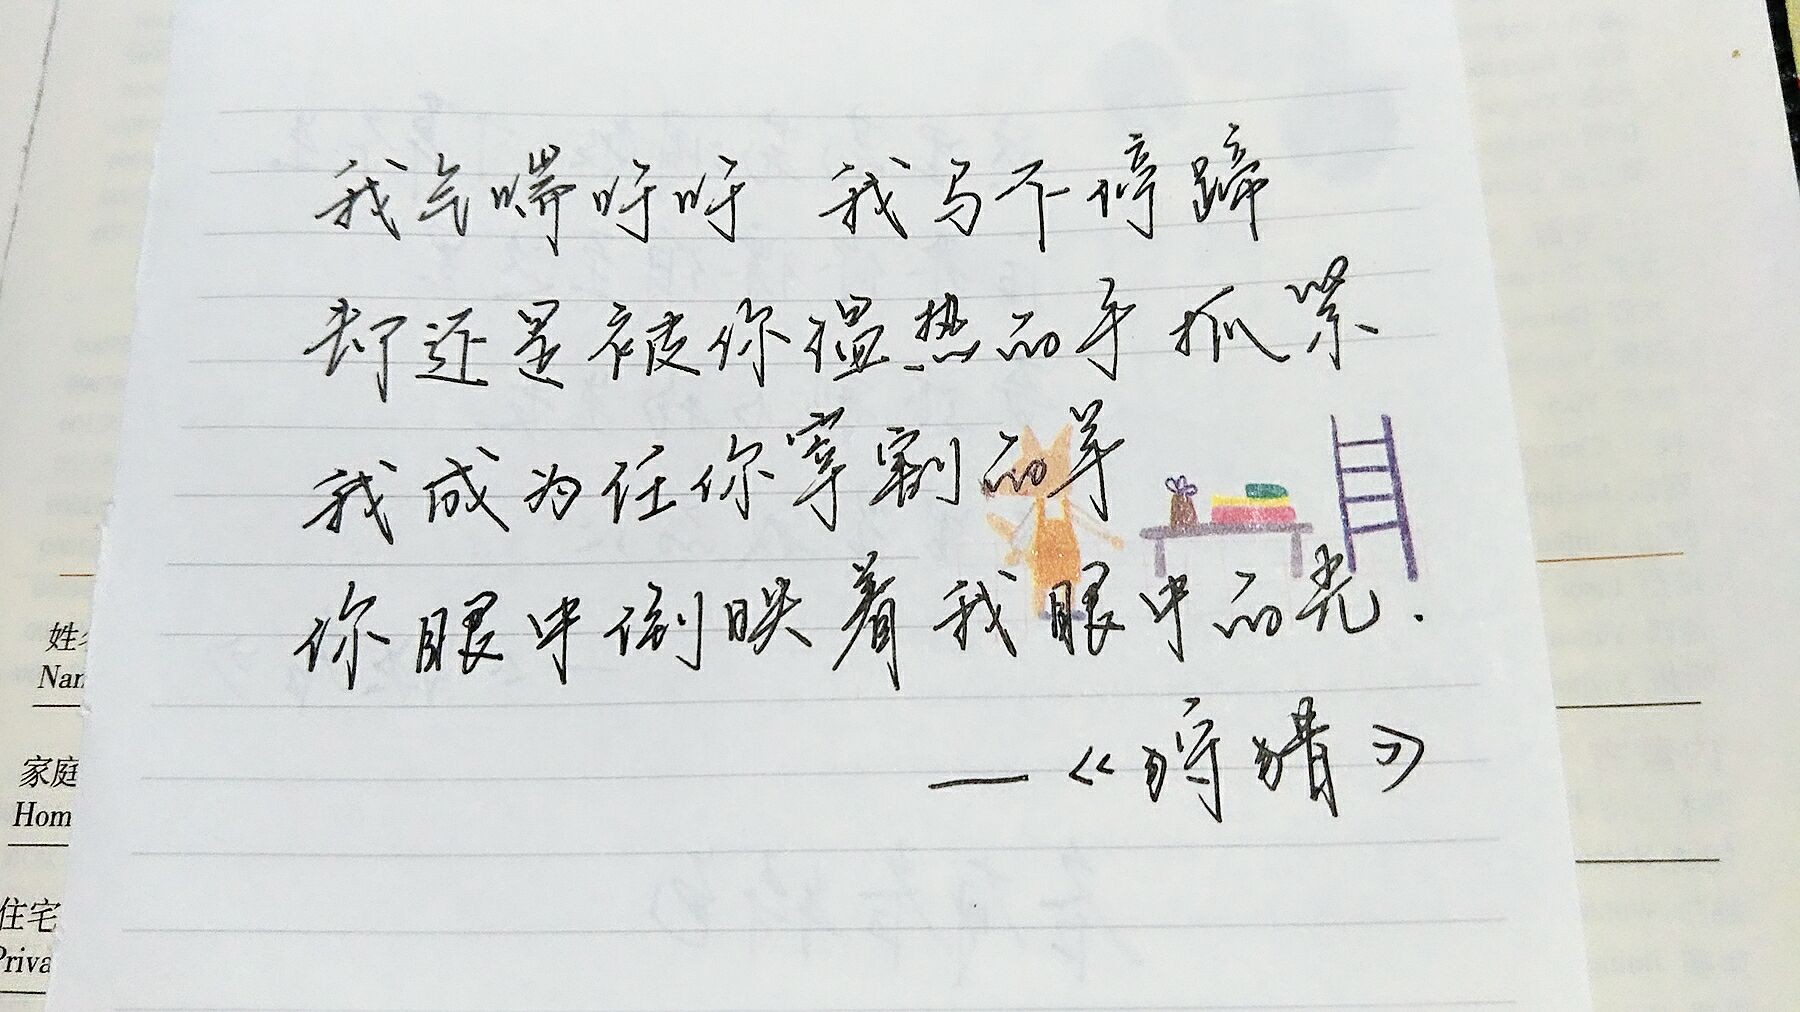 我气喘吁吁 我马不停蹄
却还是被你温热的手抓紧
我成为任你宰割的羊
你眼中倒映着我眼中的光.
—《狩猎》
姓
Nam
家庭
Hom
住宅
Priva